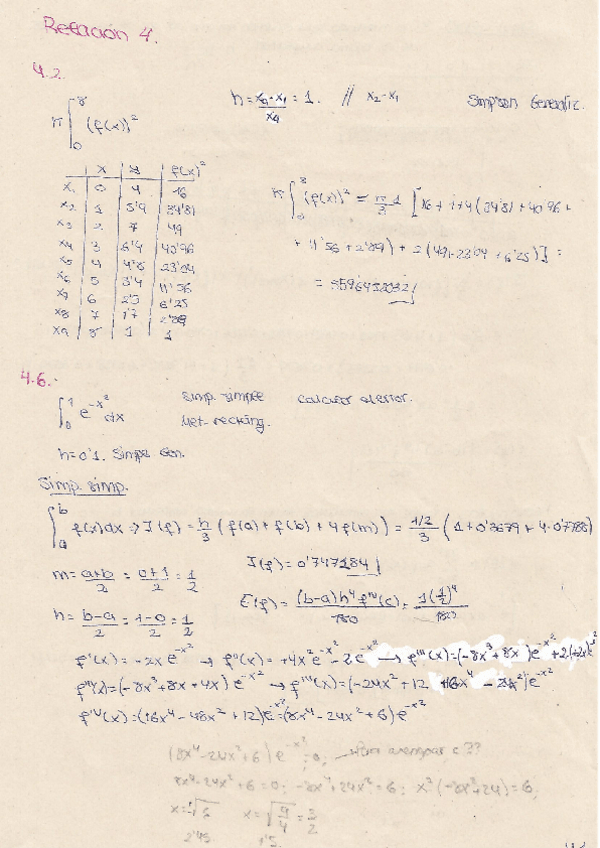 Relación 4.
4.2.
π ∫₀⁸ (f(x))²
h = (x₉-x₁)/x₉ = 1. // x₂-x₁
Simpson Generaliz.
x y f(x)²
x₁ 0 4 16
x₂ 1 5'9 34'81
x₃ 2 7 49
x₄ 3 6'4 40'96
x₅ 4 4'8 23'04
x₆ 5 3'4 11'56
x₇ 6 2'5 6'25
x₈ 7 1'7 2'89
x₉ 8 1 1
π ∫₀⁸ (f(x))² = π·1/3 [16+1+4(34'81+40'96+
+11'56+2'89)+2(49+23'04+6'25)] =
=
4.6.-
∫₀¹ e^-x² dx
Simp. simple
Met. rectáng.
h=0'1. Simps Gen.
Simp. simp.
∫ₐᵇ f(x)dx ⇒ I(f) = h/3 (f(a)+f(b)+4f(m)) = (1/2)/3 (1+0'3679+4·0'7788)
m = (a+b)/2 = (0+1)/2 = 1/2
I(f) = 0'747184
h = (b-a)/2 = (1-0)/2 = 1/2
E(f) = (b-a)h⁴ fᴵⱽ(c)/180 = 1(1/2)⁴/180
f'(x) = -2x e^-x² → f''(x) = +4x² e^-x² - 2e^-x² → f'''(x) = (-8x³+8x)e^-x² + 2(+2x)e^-x²
f'''(x) = (-8x³+8x+4x) e^-x² → fᴵⱽ(x) = (-24x²+12 +16x⁴ - 24x²)e^-x²
fᴵⱽ(x) = (16x⁴-48x²+12)e^-x² = (8x⁴-24x²+6)e^-x²
(8x⁴-24x²+6) e^-x² = 0;
8x⁴-24x²+6=0; -8x⁴+24x²=6; x²(-8x²+24)=6;
x=√6 x=√(9/4) = 3/2
2'45 1'5